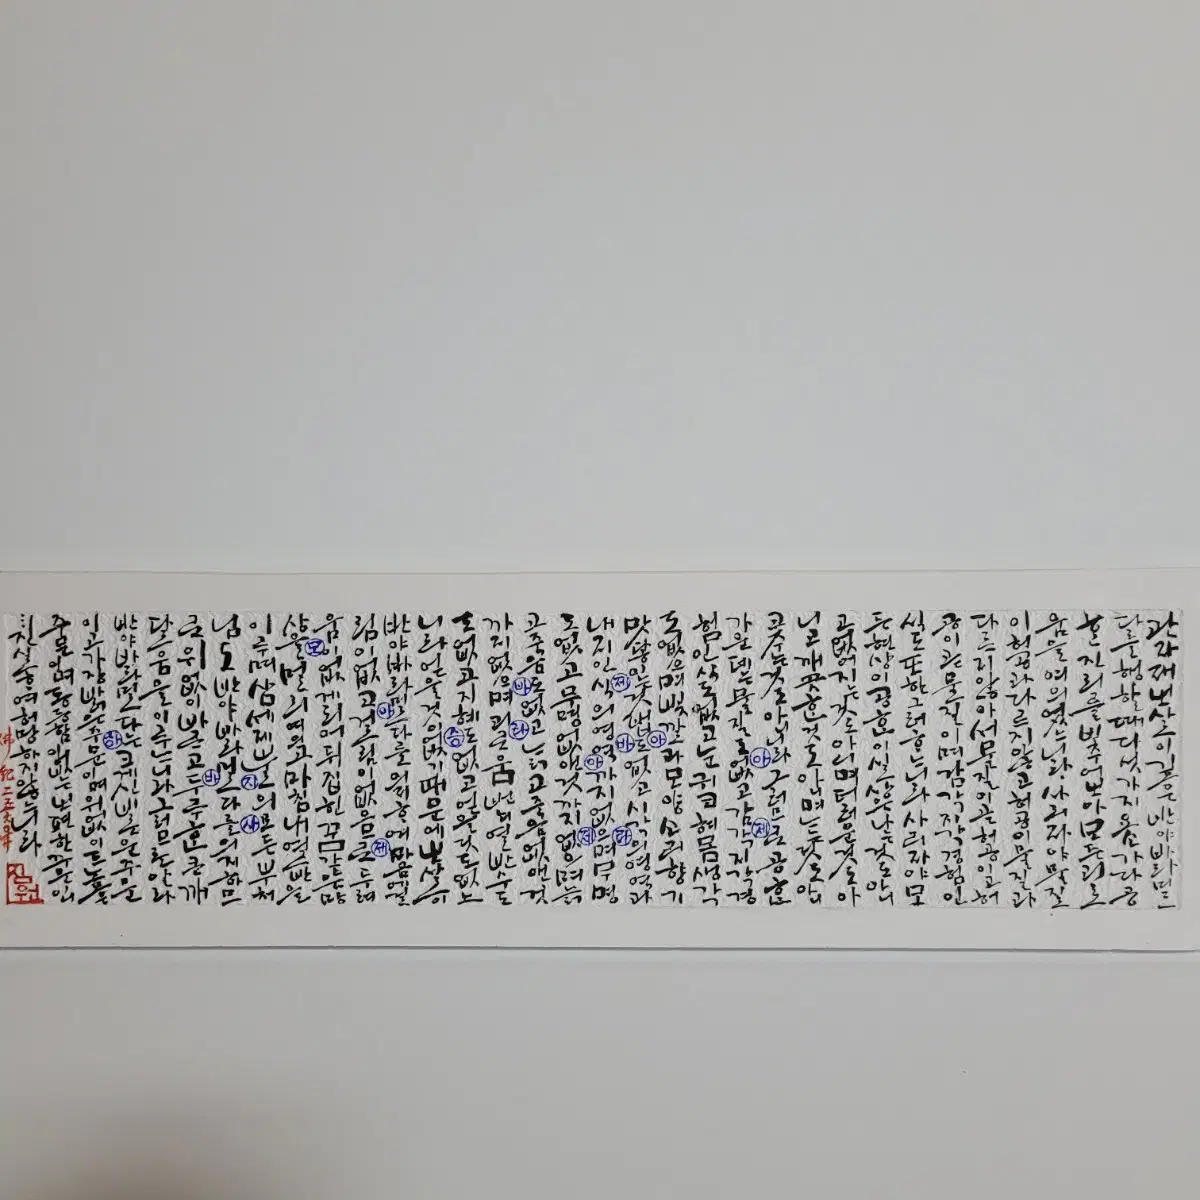 관자재보살이깊은반야바라밀
다를행할때다섯가지움가다공
한진리를비추어보아모든괴로
움을여의었느니라사리자야물질
이허공과다르지않고허공이물질과
다르지않아서물질이곧허공이고허
공이곧물질이며감각지각경험인
식도또한그러하느니라사리자야모
든현상이공함이실상은나는것도아니
고없어지는것도아니며더러운것도아
니고깨끗한것도아니며느는것도아니
고주는것도아니니라그러므로공한
가운덴물질도없고감각지각경
험인식도없고눈귀코혀몸생각
도없으며빛깔과모양소리향기
맛닿는것법도없고시각의영역과
내지인식의영역까지없으며무명
도없고무명없앤것까지없으며늙
고죽음도없고늙고죽음없앤것
까지없으며괴로움번뇌열반수도
도없고지혜도없고얻음도없노
니라얻을것이없기때문에보살이
반야바라밀다를의지하여마음걸
림이없고걸림이없음으로두려
움이없게되어뒤집힌꿈같은망
상을멀리떠나마침내열반을
이루며삼세제불의모든부처
님도반야바라밀다를의지하므
로위없이바르고두루한큰깨
달음을이루느니라그러므로알라
반야바라밀다는그게신비로운주문
이고가장밝은주문이며위없이드높은
주문이며동등함이없는보편한주문이니
진실하여허망하지않느니라
佛紀二五五